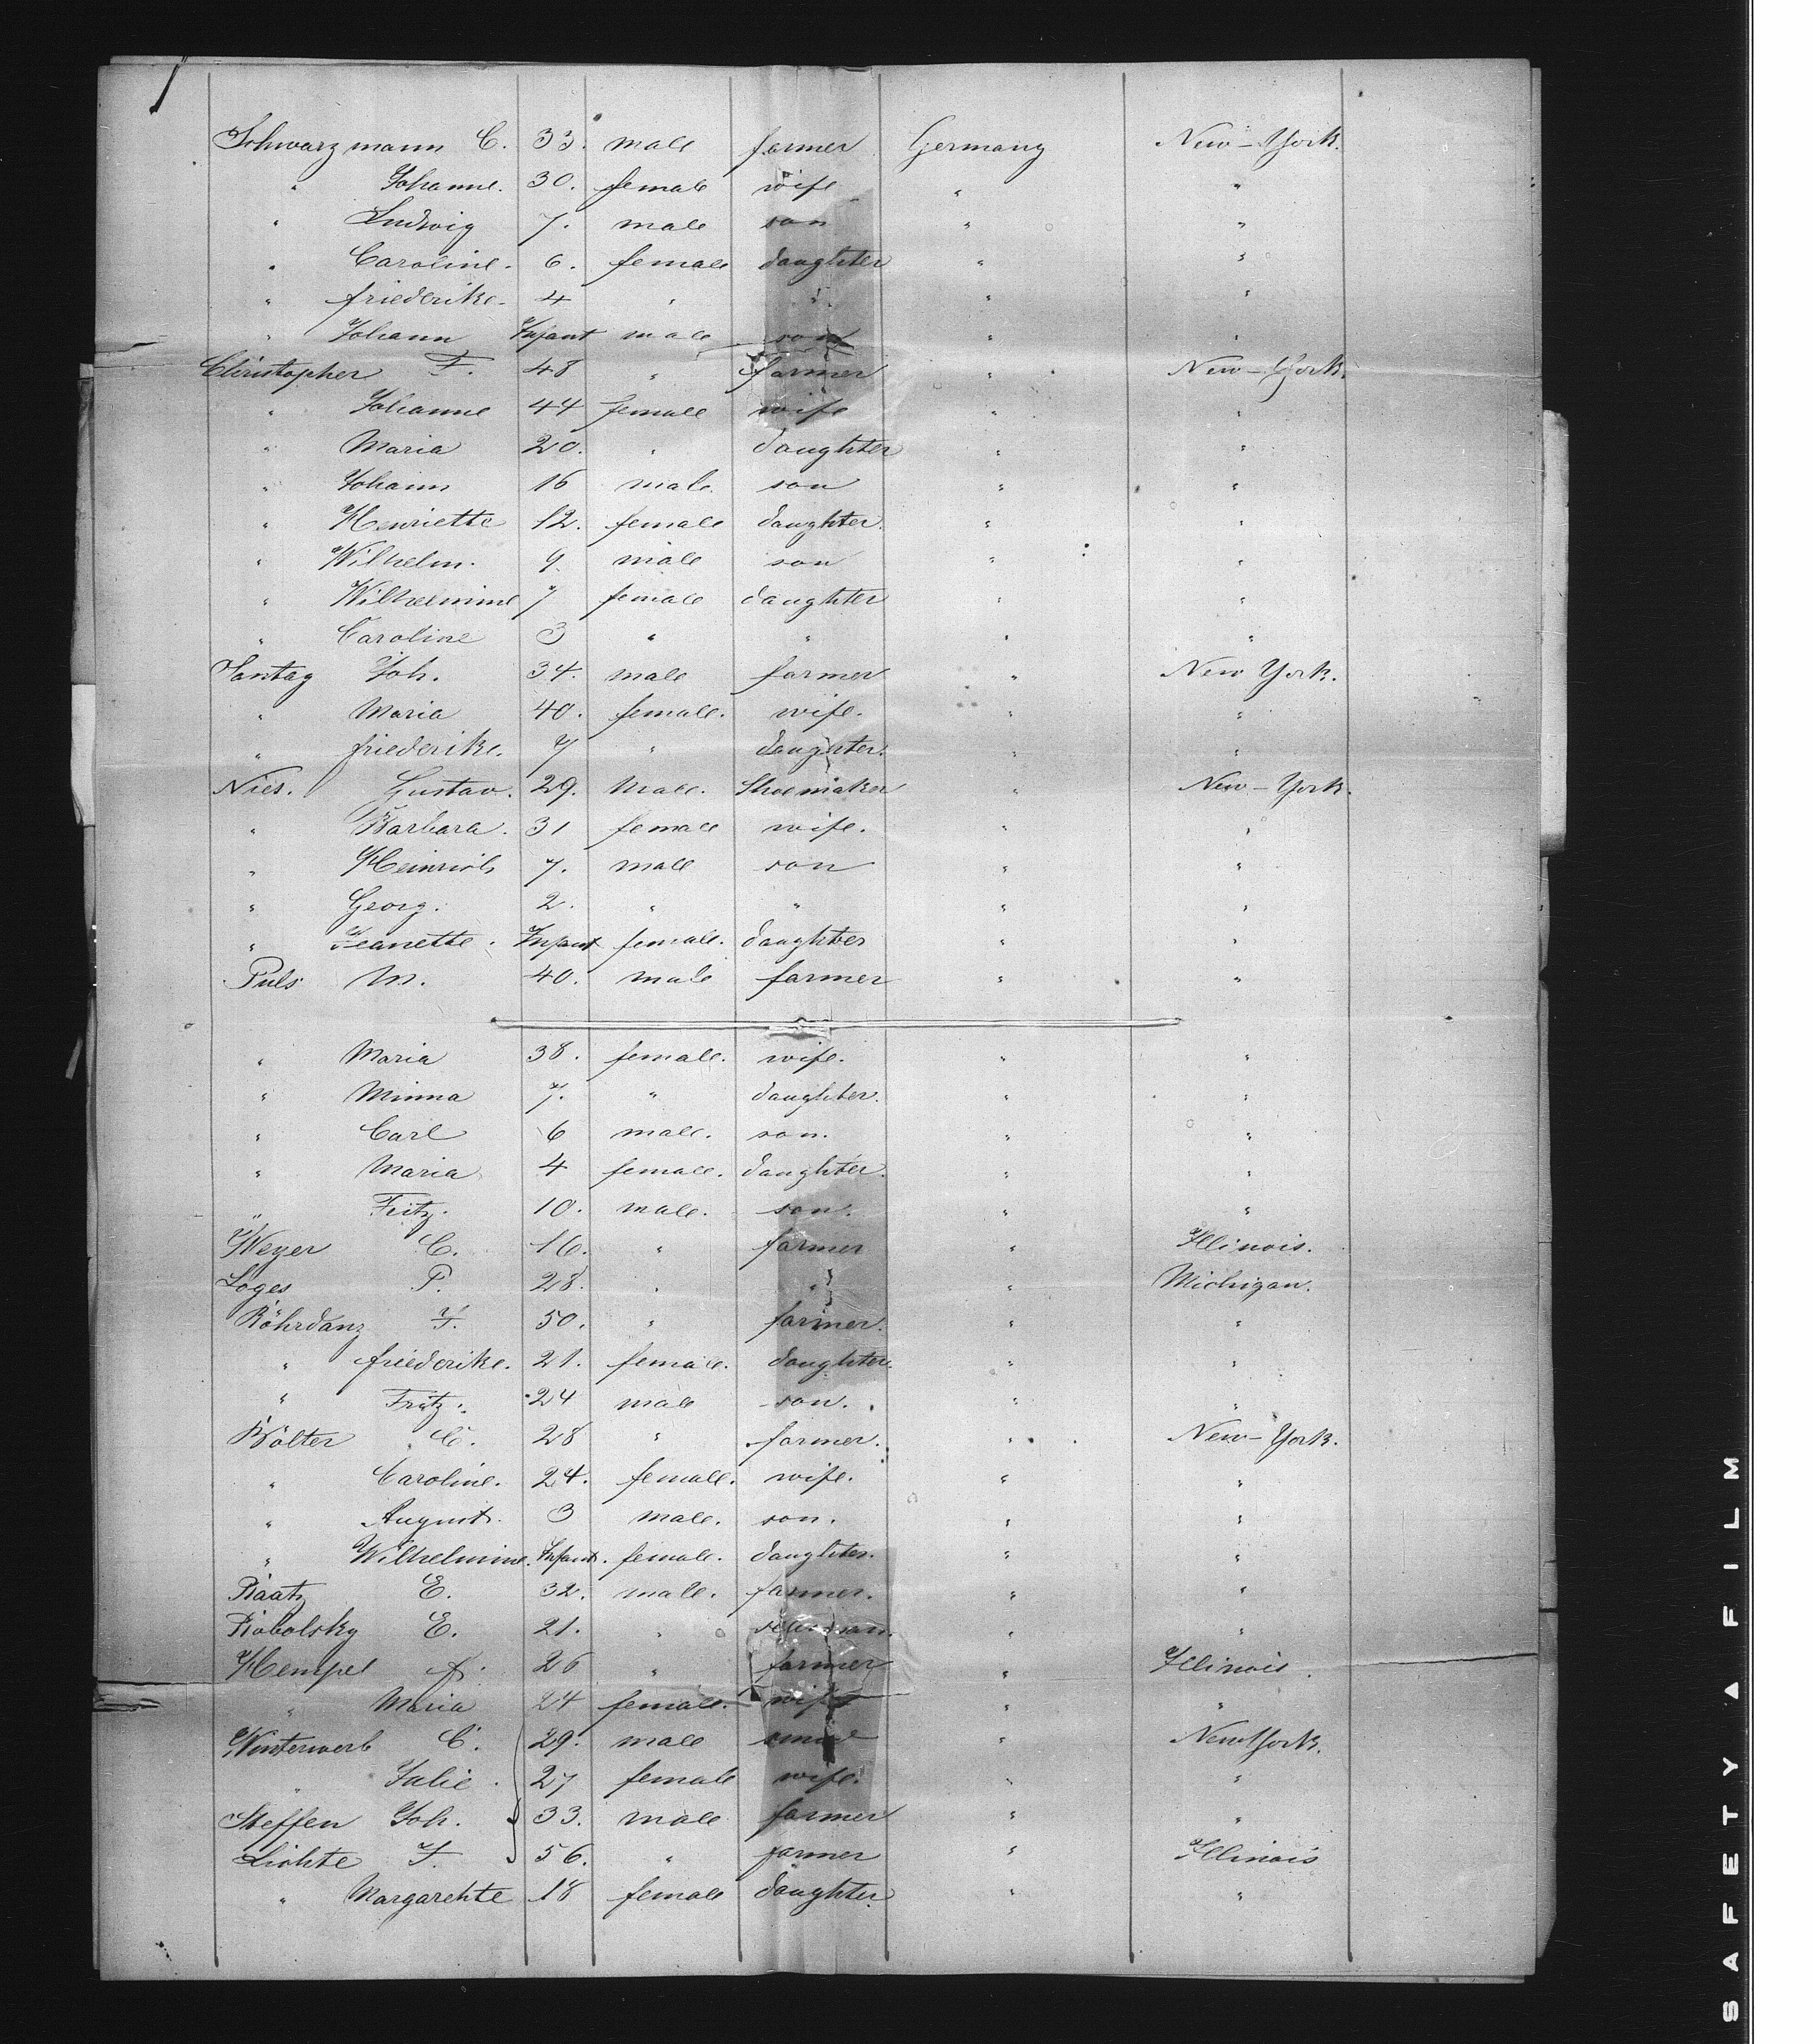 Schwarzmann C. 33. male farmer Germany New-York.
" Johanne. 30. female wife " "
" Ludwig 7. male son " "
" Caroline. 6. female daughter " "
" friederike. 4 " " " "
" Johann Infant male son " "
Christopher F. 48 " farmer " New-York.
" Johanne 44 female wife " "
" Maria 20. " daughter " "
" Johann 16 male son " "
" Henriette 12. female daughter. " "
" Wilhelm. 9. male son " "
" Wilhelmine 7 female daughter " "
" Caroline 3 " " " "
Sontag Joh. 34. male farmer " New York.
" Maria 40. female. wife. " "
" friederike. 7 " daughter. " "
Nies. Gustav. 29. Male. Shoemaker " New-York.
" Barbara. 31 female wife. " "
" Heinrich 7. male son " "
" Georg. 2. " " " "
" Jeanette. Infant female. daughter " "
Puls M. 40. male farmer " "
" Maria 38. female. wife. " "
" Minna 7. " daughter. " "
" Carl 6 male. son. " "
" Maria 4 female. daughter. " "
" Fritz. 10. male. son. " "
Weyer C. 16. " farmer " Illinois.
Loges P. 28. " " " Michigan.
Röhrdanz F. 50. " farmer. " "
" friederike. 21. female. daughter. " "
" Fritz. 24 male son. " "
Bölter C. 28 " farmer. " New-York.
" Caroline. 24. female. wife. " "
" August. 3 male. son. " "
" Wilhelmine. Infant. female. daughter. " "
Raatz E. 32. male. farmer. " "
Robolsky E. 21. " " "
Hempel A. 26 " farmer " Illinois.
" Maria 24 female. wife " "
Winterwerb C. 29. male " New York.
" Julie. 27 female wife. " "
Steffen Joh. 33. male farmer " "
Lichte F. 56. " farmer " Illinois
" Margarehte 18 female daughter. " "
SAFETY ▲ FILM